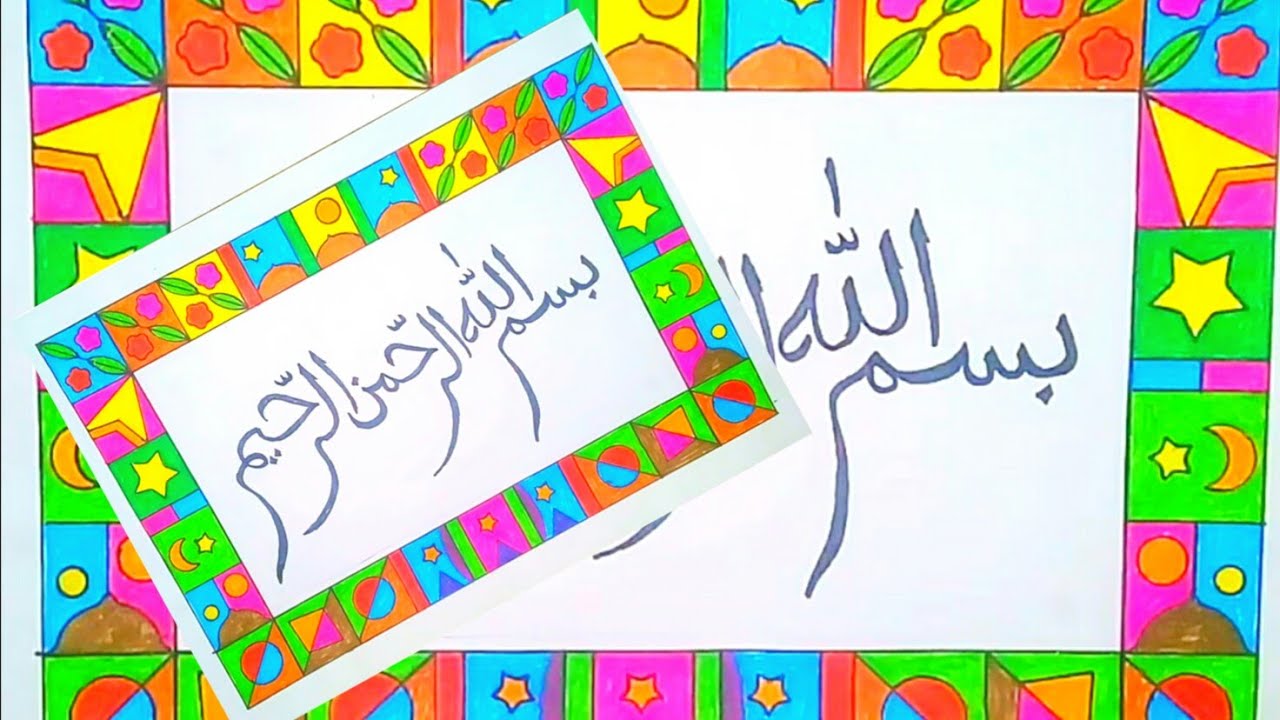 بسم اللّٰه الرّحمن الرّحيم
بسم اللّٰه